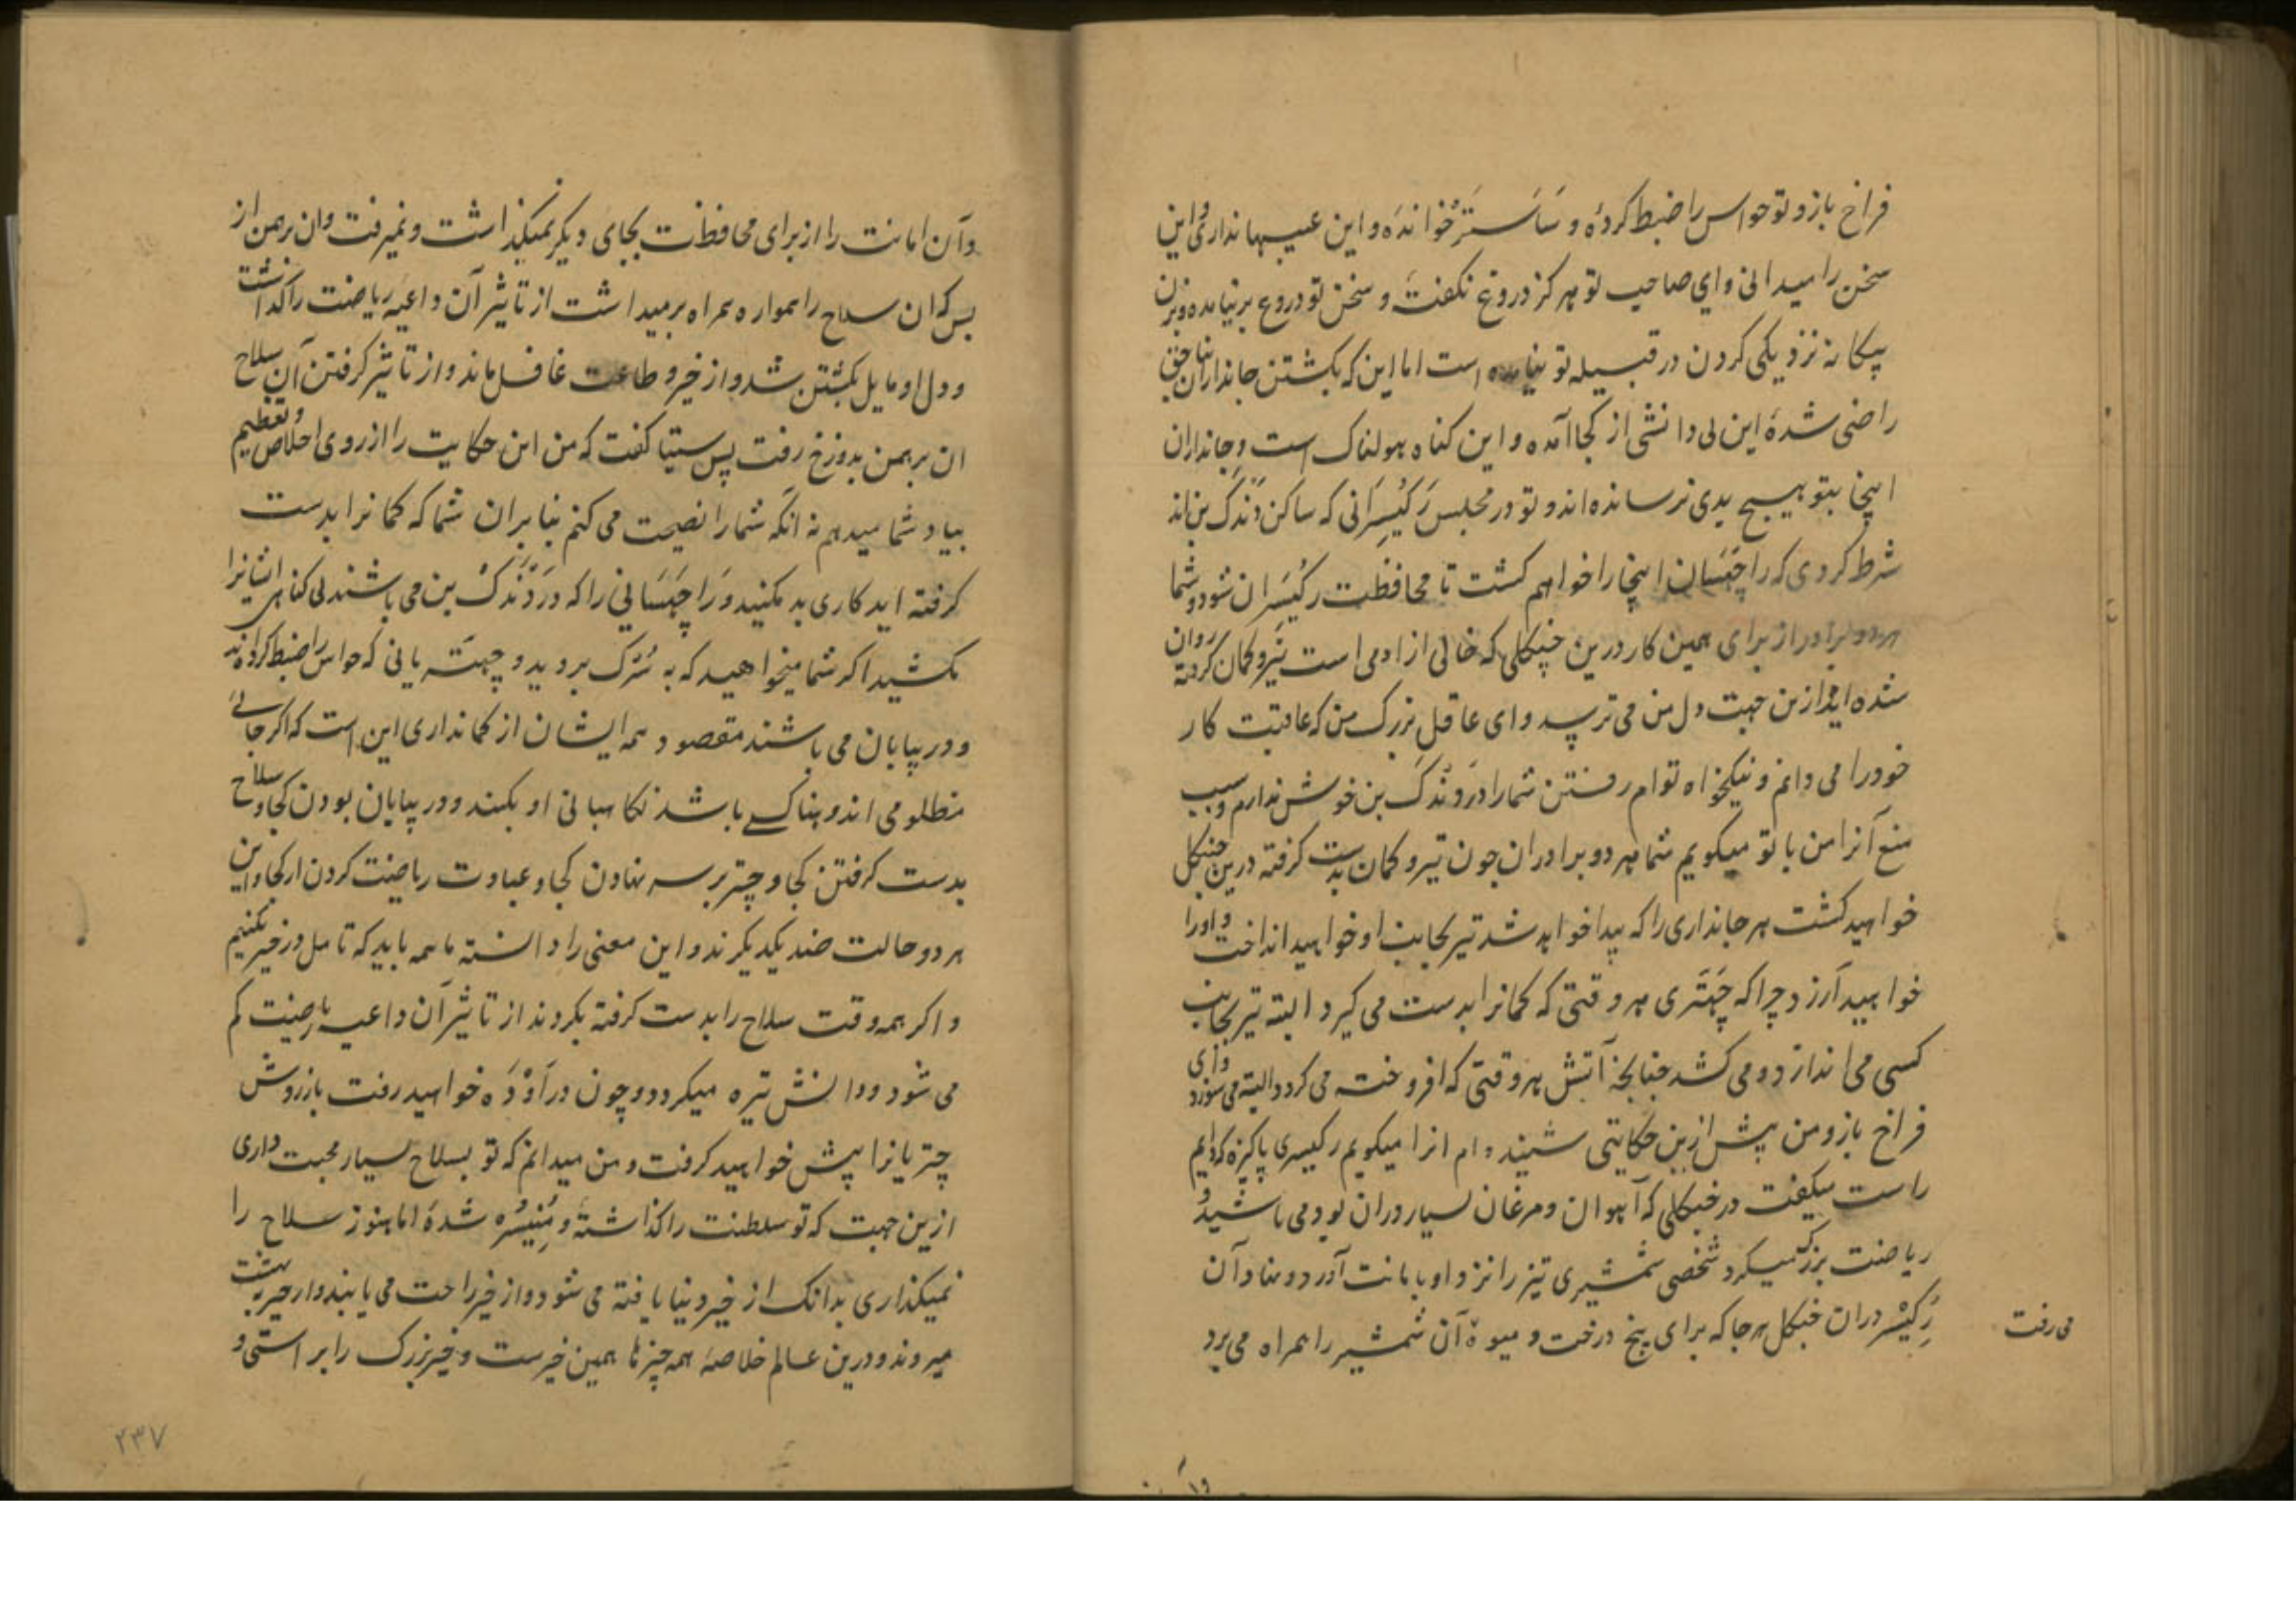 فراخ بازو تو حواس را ضبط کردهٔ و سَاسَتَر خواندهٔ و این عیبها نداری و این
سخن را میدانی و ای صاحب تو هرکز دروغ نکفتهٔ و سخن تو دروغ برنیامده و بزن
بیکانه نزدیکی کردن در قبیله تو نیامده است اما این که بکشتن جانداران ناحق
راضی شدهٔ این بی دانشی از کجا آمده و این کناه هولناک است و جانداران
اینجا بتو هیچ بدی نرسانده اند و تو در مجلس رَکیسِرانی که ساکن دَندَک بن اند
شرط کردی که راچهَسان اینجا را خواهم کشت تا محافظت رکیسَران شود و شما
هر دو برادر از برای همین کار درین جنکلی که خالی از ادمی است تیر و کمان کرفته روان
شده اید ازین جهت دل من می ترسد و ای عاقل بزرک من که عاقبت کار
خود را می دانم و نیکخواه توام رفتن شما را در دَندَک بن خوش ندارم و سبب
منع آنرا من با تو میکویم شما هر دو برادران چون تیر و کمان بدست کرفته درین جنکل
خواهید کشت هر جانداری را که پیدا خواهد شد تیر بجانب او خواهید انداخت و اورا
خواهید آزرد چرا که چهَتری هر وقتی که کمانرا بدست می کیرد البته تیر بجانب
کسی می اندازد و می کشد چنانچه آتش هر وقتی که افروخته می کردد البته می سوزد و ای
فراخ بازو من پیش ازین حکایتی شنیده ام انرا میکویم رکیسری پاکیزه کردایم
راست میکفت در جنکلی که آهوان و مرغان بسیار دران بود می باشید و
ریاضت بزرک میکرد شخصی شمشیری تیز را نزد او بامانت آورد و نهاد و آن
رَکیسر دران جنکل هر جا که برای بیخ درخت و میوه آن شمشیر را همراه می برد
می رفت
و آن امانت را از برای محافظت بجای دیکر نمیکذاشت و نمیرفت و ان برهمن از
بس که ان سلاح را همواره همراه برمیداشت از تاثیر آن داعیهٔ ریاضت را کذاشت
و دل او مایل بکشتن شد و از خیر و طاعت غافل ماند و از تاثیر کرفتن آن سلاح
ان برهمن بدوزخ رفت پس سیتا کفت که من این حکایت را از روی اخلاص و تعظیم
بیاد شما میدهم نه انکه شما را نصیحت می کنم بنابران شما که کمانرا بدست
کرفته اید کاری بد مکنید و رَاچهَسَانی را که در دَندَک بن می باشند بی کناهی ایشانرا
مکشید اکر شما میخواهید که به سُرَک بروید و چهتریانی که حواس را ضبط کرده اند
و در بیابان می باشند مقصود همه ایشان از کمانداری این است که اکر جائی
مظلومی اندوهناک باشد نکاهبانی او بکنند و در بیابان بودن کجا و سلاح
بدست کرفتن کجا و چتر بر سر نهادن کجا و عبادت ریاضت کردن از کجا و این
هر دو حالت ضد یکدیکرند و این معنی را دانسته ما همه باید که تامل در خیر بکنیم
و اکر همه وقت سلاح را بدست کرفته بکردند از تاثیر آن داعیه ریاضت کم
می شود و دانش تیره میکردد و چون در اَوْدَه خواهید رفت باز روش
چتریانرا پیش خواهید کرفت و من میدانم که تو بسلاح بسیار محبت داری
ازین جهت که تو سلطنت را کذاشتهٔ و مُنیسُره شدهٔ اما هنوز سلاح را
نمیکذاری بدانک از خیر دنیا یافته می شود و از خیر راحت می یابند و از خیر به بهشت
میروند و درین عالم خلاصهٔ همه چیزها همین خیرست و خیر بزرک را براستی و
۲۳۷